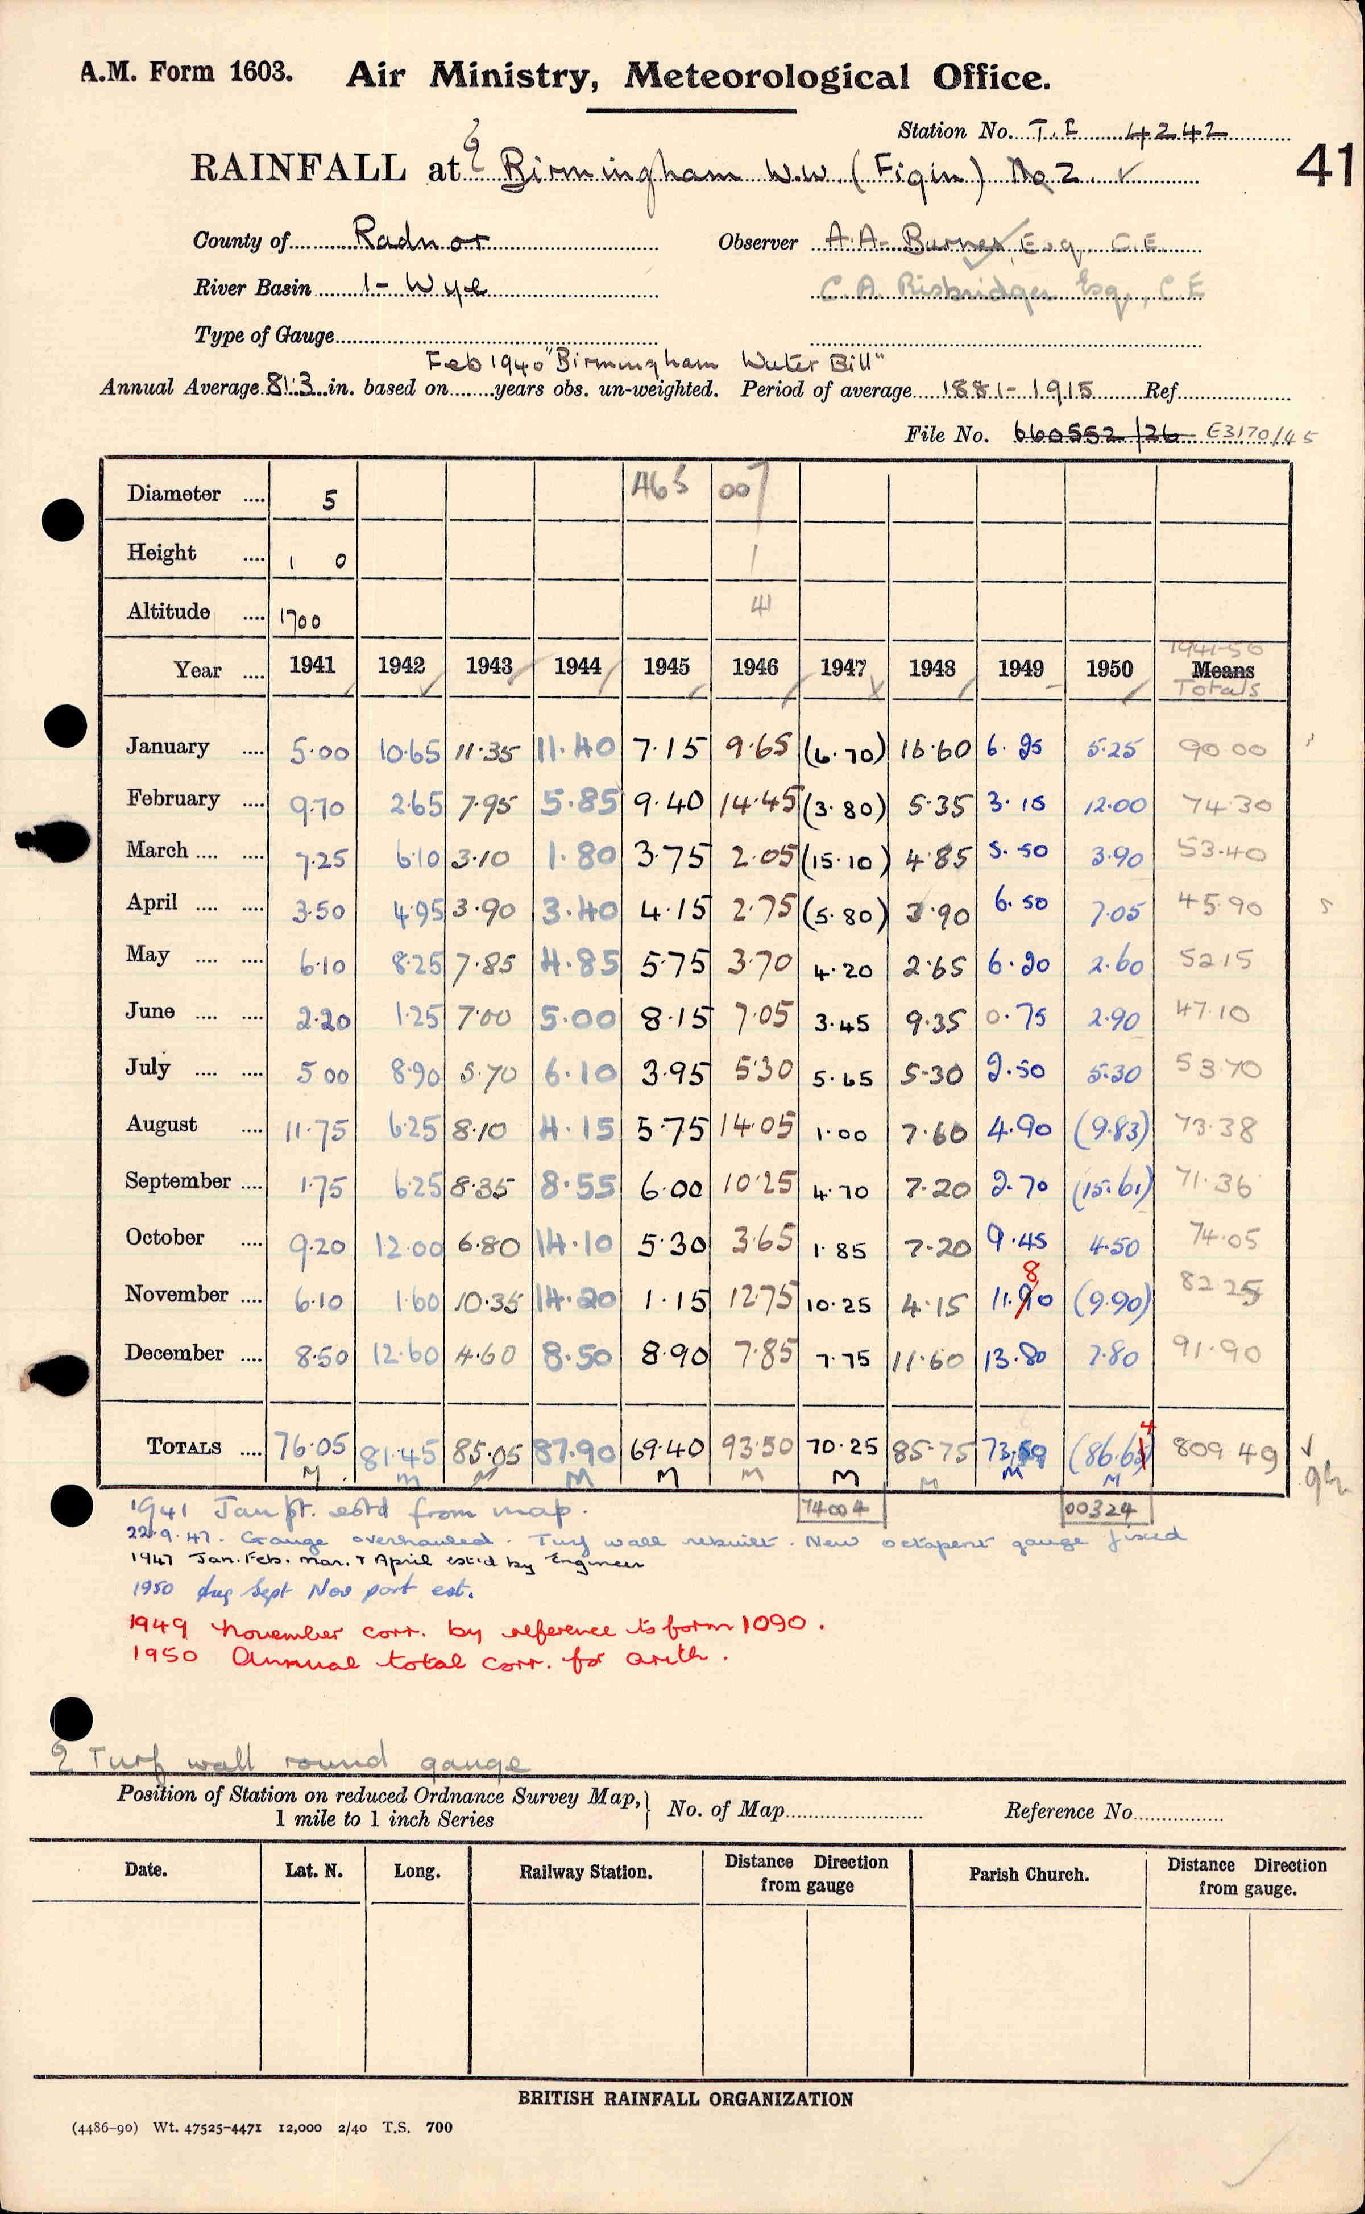 A.M. Form 1603. Air Ministry, Meteorological Office.
Station No. T.E 4242
41
RAINFALL at Birmingham W.W. (Figin) No 2. ✓
County of Radnor Observer A.A. Barnes, Esq. C.E.
River Basin 1- Wye C.A. Risbridger Esq., C.E
Type of Gauge
Feb 1940 "Birmingham Water Bill"
Annual Average 81.3 in. based on years obs. un-weighted. Period of average 1881-1915 Ref.
File No. 660552/26 E3170/45
Diameter 5 465 007
Height 1 0 1
Altitude 1700 41
1941-50
Year 1941 1942 1943 1944 1945 1946 1947 1948 1949 1950 Means
Totals
January 5.00 10.65 11.35 11.40 7.15 9.65 (6.70) 16.60 6.25 5.25 90.00
February 9.70 2.65 7.95 5.85 9.40 14.45 (3.80) 5.35 3.15 12.00 74.30
March 7.25 6.10 3.10 1.80 3.75 2.05 (15.10) 4.85 5.50 3.90 53.40
April 3.50 4.95 3.90 3.40 4.15 2.75 (5.80) 3.90 6.50 7.05 45.90
May 6.10 8.25 7.85 4.85 5.75 3.70 4.20 2.65 6.20 2.60 52.15
June 2.20 1.25 7.00 5.00 8.15 7.05 3.45 9.35 0.75 2.90 47.10
July 5.00 8.90 5.70 6.10 3.95 5.30 5.65 5.30 2.50 5.30 53.70
August 11.75 6.25 8.10 4.15 5.75 14.05 1.00 7.60 4.90 (9.83) 73.38
September 1.75 6.25 8.35 8.55 6.00 10.25 4.70 7.20 2.70 (15.61) 71.36
October 9.20 12.00 6.80 14.10 5.30 3.65 1.85 7.20 9.45 4.50 74.05
8
November 6.10 1.60 10.35 14.20 1.15 12.75 10.25 4.15 11.90 (9.90) 82.25
December 8.50 12.60 4.60 8.50 8.90 7.85 7.75 11.60 13.80 7.80 91.90
4
TOTALS 76.05 81.45 85.05 87.90 69.40 93.50 70.25 85.75 73.59 (86.65) 809.49
M M M M M M M M M M
1941 Jan pt. estd from map. 74004 00324
22.9.47. Gauge overhauled. Turf wall rebuilt. New octapent gauge fixed
1947 Jan. Feb. Mar. & April est'd by Engineer
1950 Aug Sept Nov part est.
1949 November corr. by reference to form 1090.
1950 Annual total corr. for arith.
Turf wall round gauge
Position of Station on reduced Ordnance Survey Map, No. of Map Reference No
1 mile to 1 inch Series
Date. Lat. N. Long. Railway Station. Distance from gauge Direction Parish Church. Distance Direction from gauge.
BRITISH RAINFALL ORGANIZATION
(4486-90) Wt. 47525-4471 12,000 2/40 T.S. 700